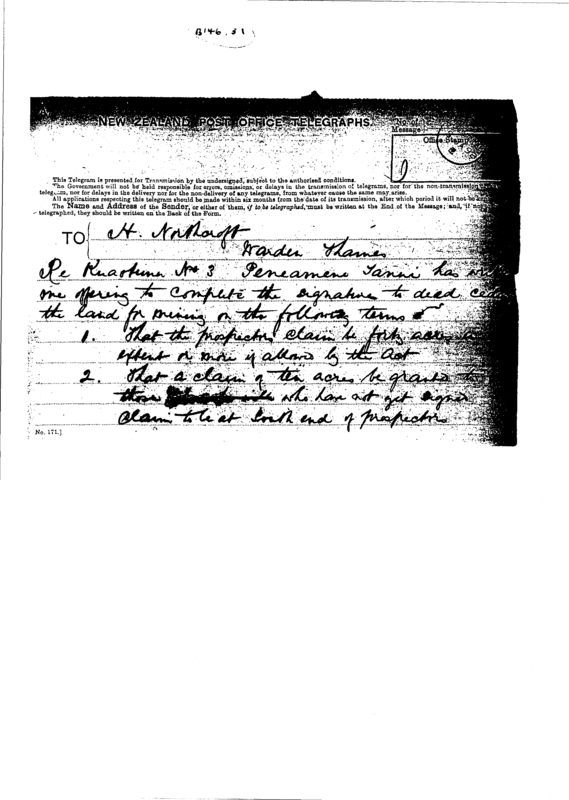 B146.31
NEW ZEALAND POST OFFICE TELEGRAPHS.
Message
Office Stamp
This Telegram is presented for Transmission by the undersigned, subject to the authorised conditions.
The Government will not be held responsible for errors, omissions, or delays in the transmission of telegrams, nor for the non-transmission
telegram, nor for delays in the delivery nor for the non-delivery of any telegrams, from whatever cause the same may arise.
All applications respecting this telegram should be made within six months from the date of its transmission, after which period it will not be
The Name and Address of the Sender, or either of them, if to be telegraphed, must be written at the End of the Message; and, if not
telegraphed, they should be written on the Back of the Form.
TO H. Northcroft
Warden Thames
Re Kuaotunu No 3 Peneamene Tanui has
me offering to complete the signature to deed
the land for mining on the following terms
1. That the prospectors claim be forty acres
extent or more if allowed by the Act
2. That a claim of ten acres be granted
those who have not yet signed
claim to be at South end of prospectors
No. 171.]